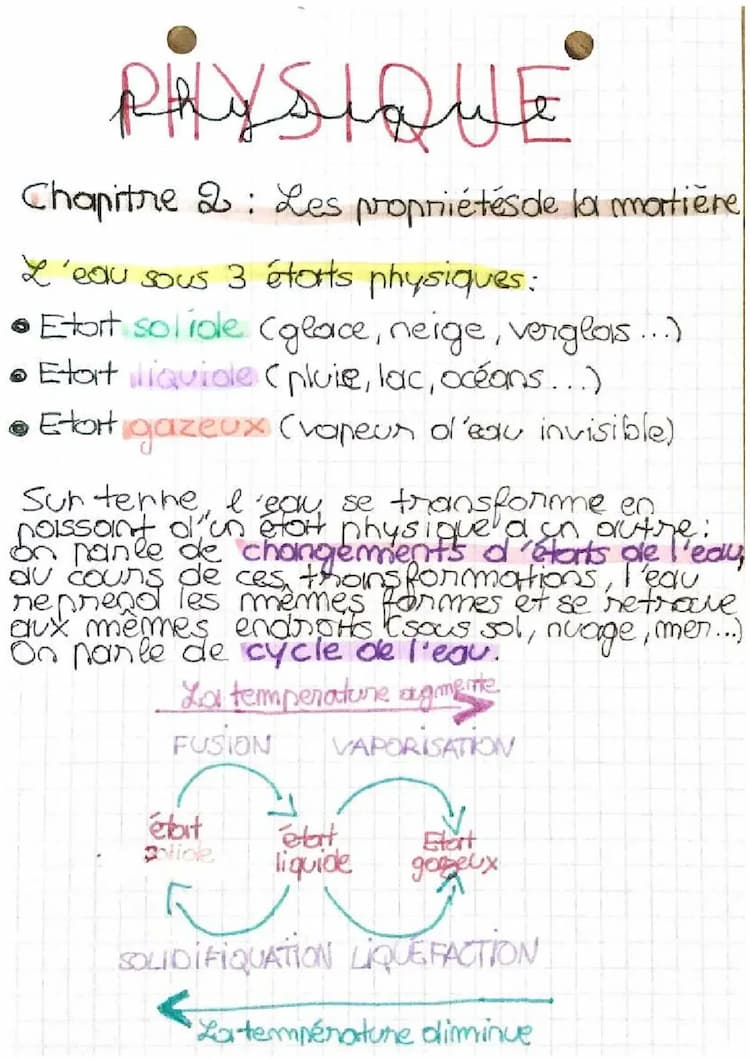 PHYSIQUE
physique
Chapitre 2 : Les propriétés de la matière
L'eau sous 3 états physiques :
• Etat solide (glace, neige, verglas ...)
• Etat liquide (pluie, lac, océans ...)
• Etat gazeux (vapeur d'eau invisible)
Sur terre, l'eau se transforme en
passant d'un état physique à un autre :
On parle de changements d'états de l'eau,
au cours de ces transformations, l'eau
reprend les mêmes formes et se retrouve
aux mêmes endroits (sous sol, nuage, mer...)
On parle de cycle de l'eau.
La temperature agmente
FUSION VAPORISATION
état solide état liquide Etat gazeux
SOLIDIFIQUATION LIQUÉFACTION
La température diminue